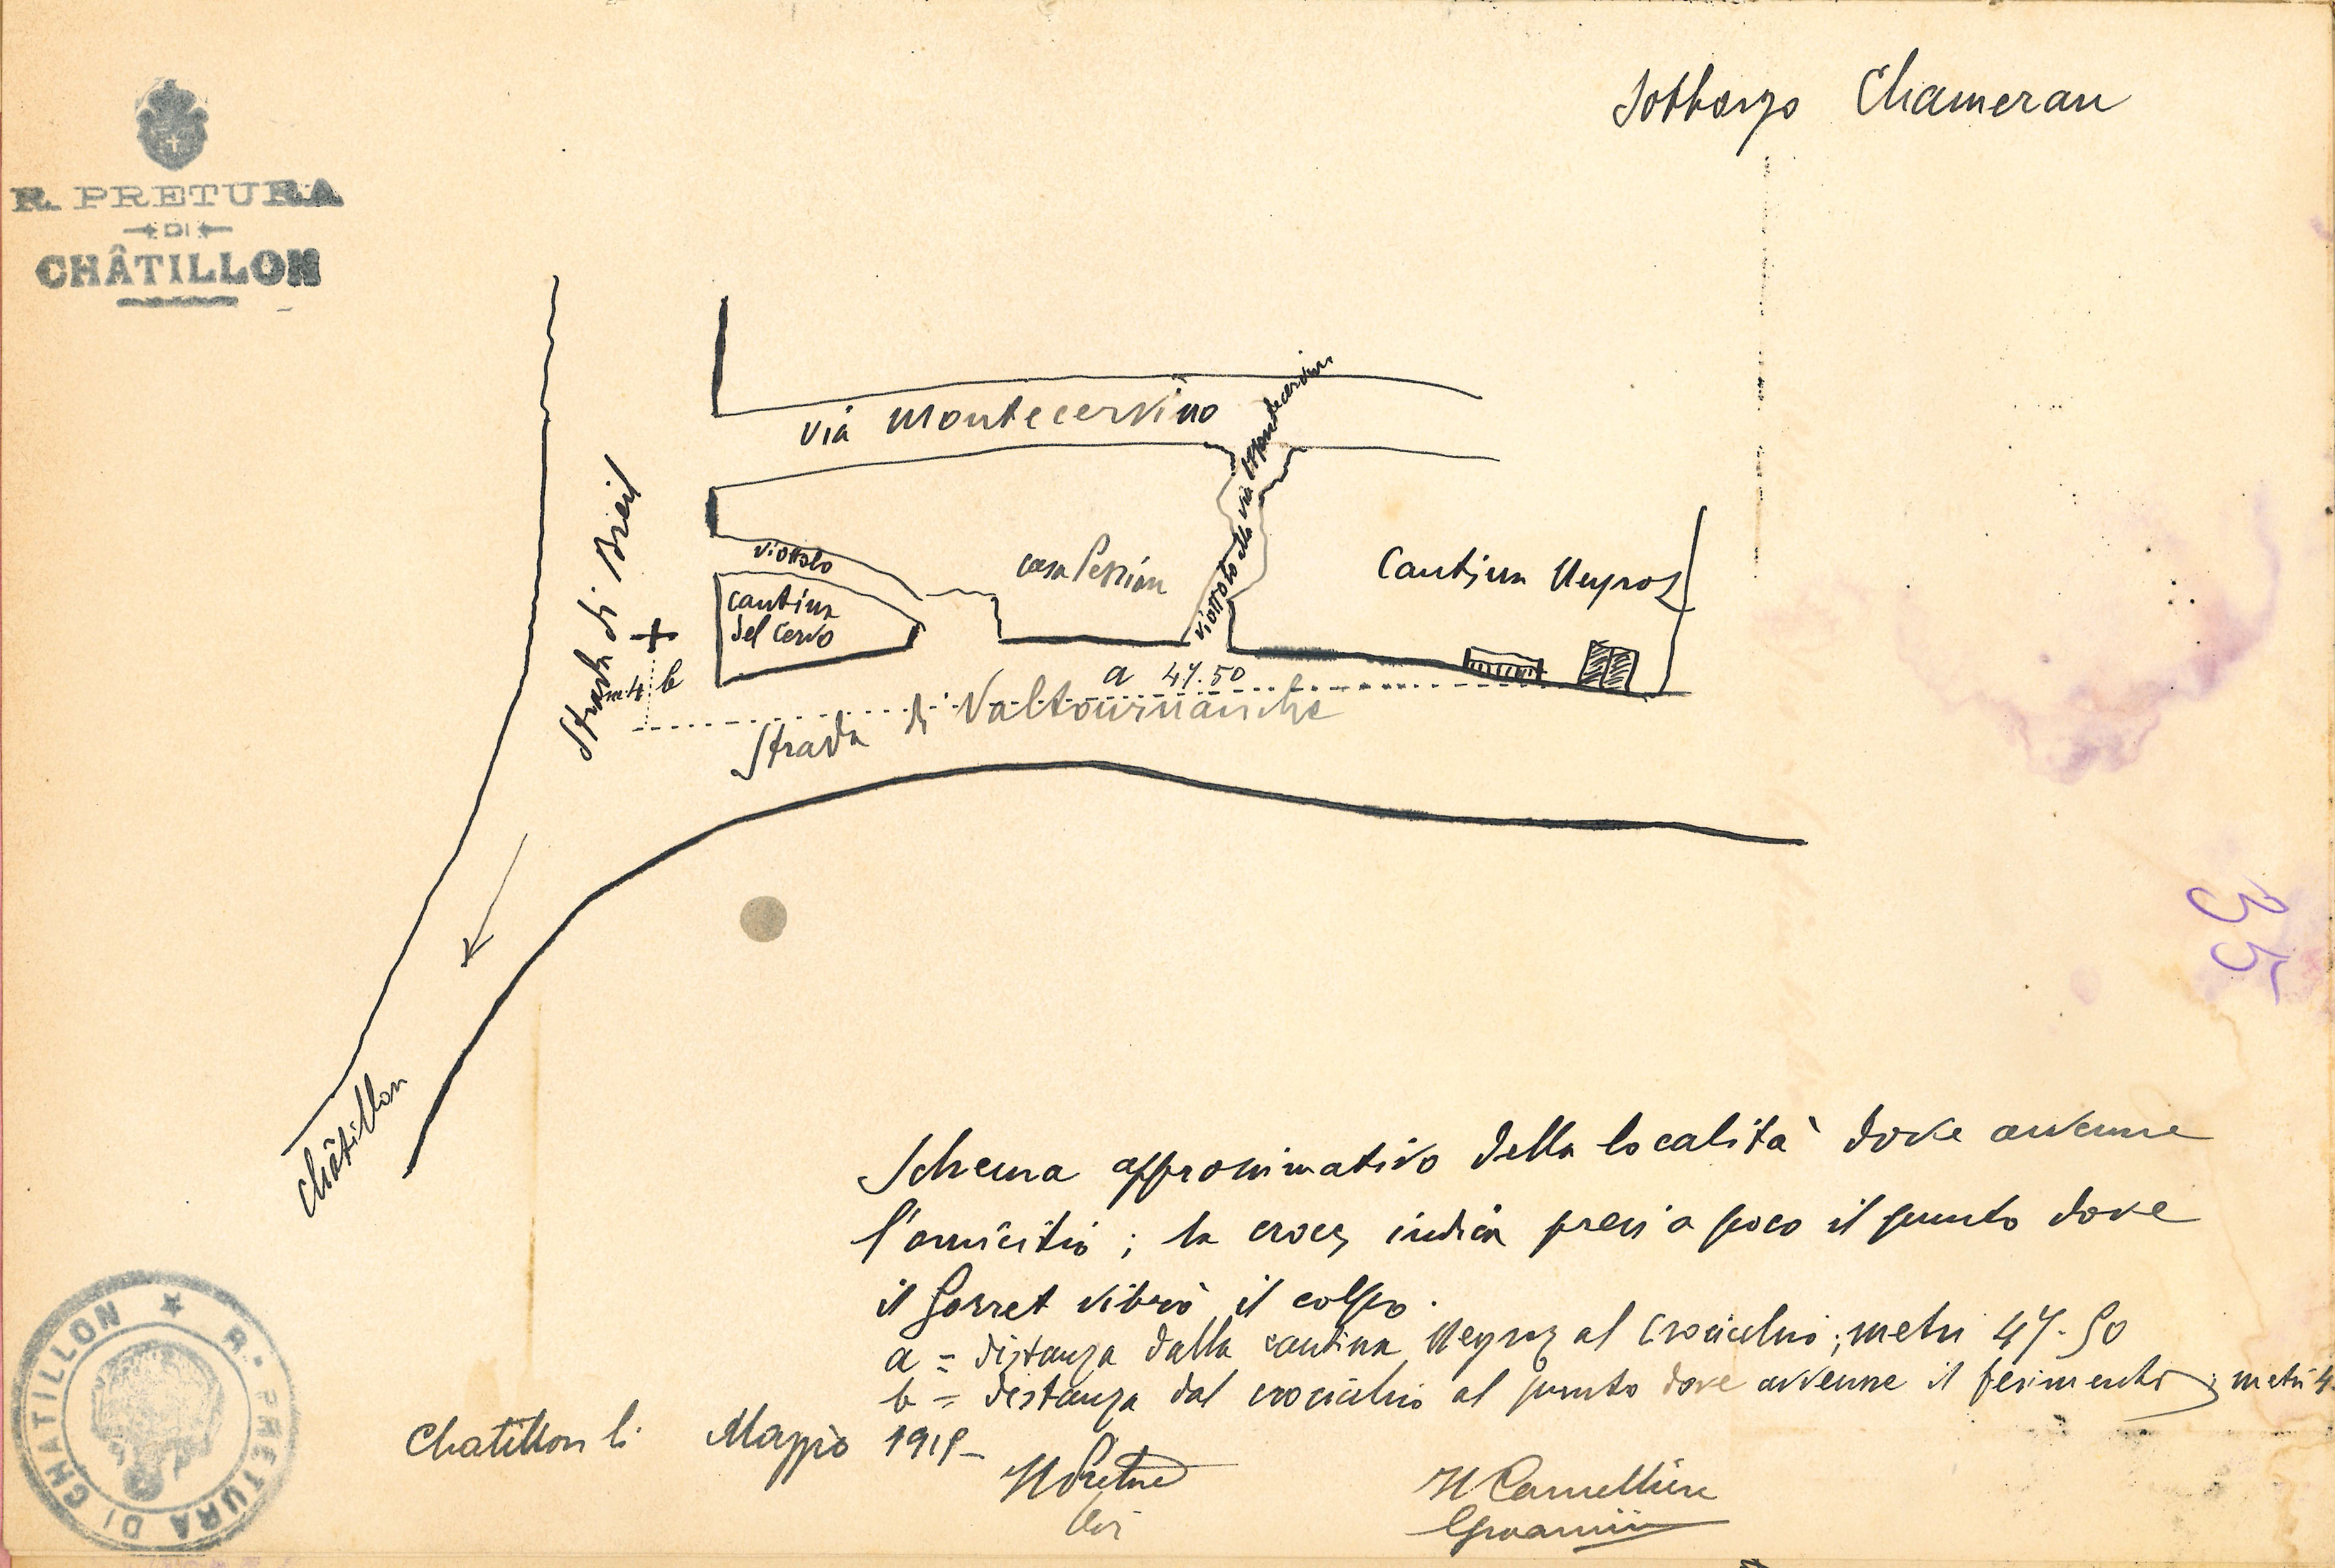 Sobborgo Chameran
R. PRETURA
DI
CHÂTILLON
via Montecervino
viottolo alla via Montecervino
Strada di Breil
viottolo
casa Pession
Cantina Neyroz
cantina
del Cervo
m. 4 b
a 47.50
Strada di Valtournanche
35
Châtillon
Schema approssimativo della località dove avvenne
l'omicidio; la croce indica press'a poco il punto dove
il Gorret vibrò il colpo.
a = distanza dalla cantina Neyroz al crocicchio; metri 47.50
b = distanza dal crocicchio al punto dove avvenne il ferimento; metri 4.
Chatillon li Maggio 1919
Il Pretore
Il Cancelliere
R. PRETURA DI CHATILLON